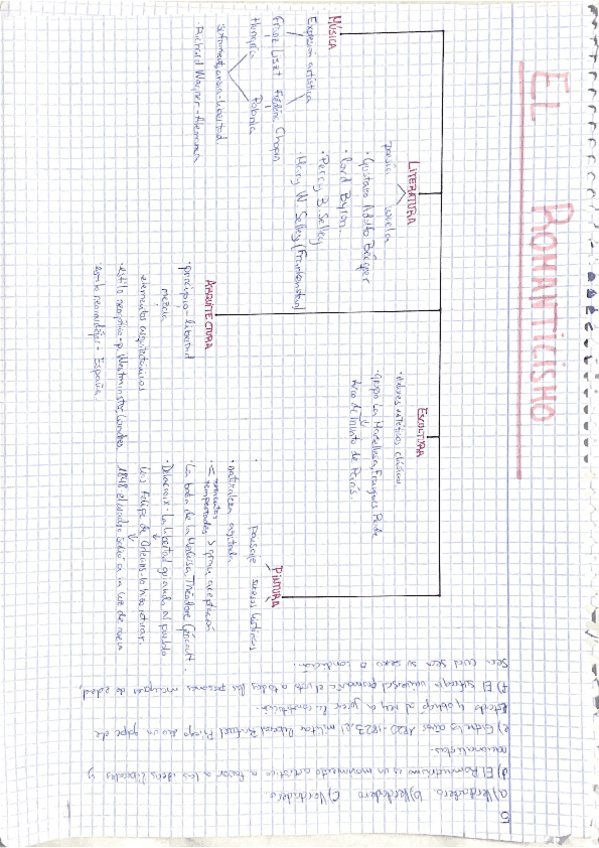 EL ROMANTICISMO
MÚSICA
Expresión artística
Franz Liszt Frédéric Chopin
Hungría Polonia
libertad
·Richard Wagner-Aleman
LITERATURA
poesía novela
·Gustavo Adolfo Bécquer
·Lord Byron
·Percy B. Selley
·Mary W. Selley (Frankenstein)
ARQUITECTURA
·principio-libertad
mezcla
elementos arquitectónicos
·estilo neogótico-p. Westminster, Londres
·estilo neomudéjar-España
ESCULTURA
·valores estéticos clásicos.
·Grupo La Marsellesa, François Rude
Arco de Triunfo de París.
PINTURA
Paisaje sucesos históricos
·naturaleza agitada
tormentas
tempestades > gran aceptación
·La balsa de la Medusa, Théodore Géricault.
·Delacroix-La libertad guiando al pueblo
Luis Felipe de Orleans lo hizo retirar.
1848 el cuadro salió a la luz de nuevo
5
a) Verdadero. b) Verdadero c) Verdadero.
d) El Romanticismo es un movimiento artístico a favor a las ideas liberales y
nacionalistas.
e) Entre los años 1820-1823, el militar liberal Rafael Riego dio un golpe de
Estado y obligó al rey a jurar la constitución.
f) El sufragio universal permite el voto a todas las personas mayores de edad,
sea cual sea su sexo o condición.